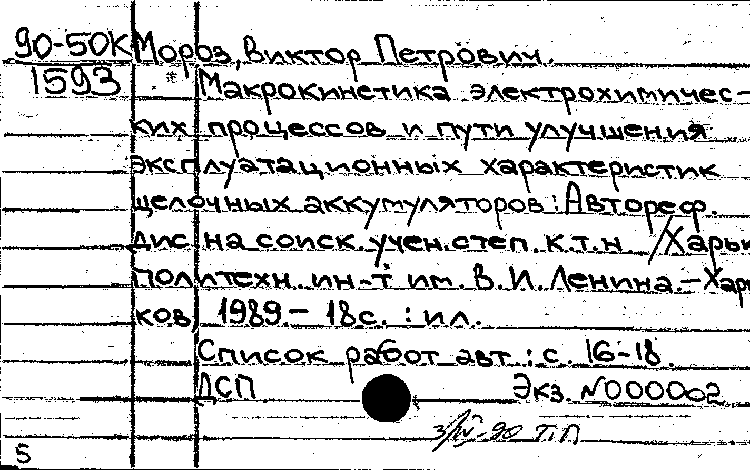 90-50К Мороз, Виктор Петрович.
1593 Макрокинетика электрохимичес-
ких процессов и пути улучшения
эксплуатационных характеристик
щелочных аккумуляторов: Автореф.
дис. на соиск. учен. степ. к.т.н. / Харьк
политехн. ин-т им. В.И. Ленина.-Харь
ков, 1989.- 18с. : ил.
Список работ авт.: с. 16-18.
ДСП Экз. №000002
3/IV-90 Т.П
5